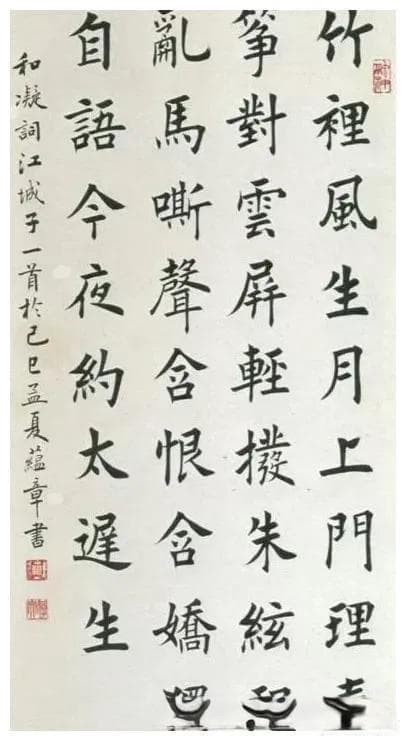 竹裡風生月上門理
箏對雲屏輕撥朱絃
亂馬嘶聲含恨含嬌
自語今夜約太遲生
和凝詞江城子一首於己巳孟夏蘊章書